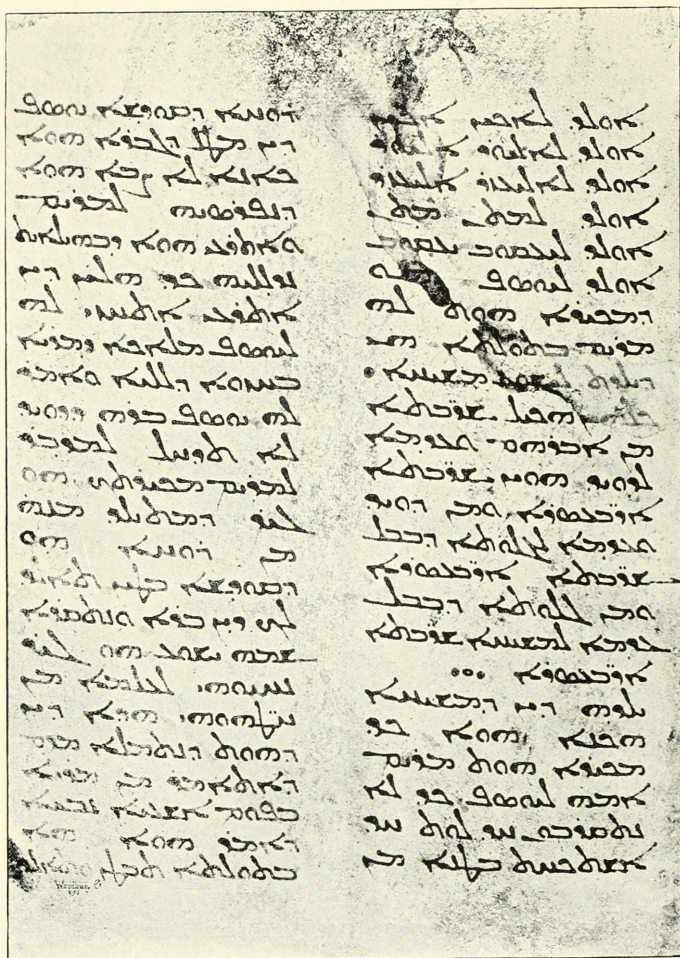 ܐܘܠܕ ܠܐܟܝܢ ܐܟܝܢ
ܐܘܠܕ ܠܐܠܝܘܕ ܐܠܝܘܕ
ܐܘܠܕ ܠܐܠܝܥܙܪ ܐܠܝܥܙܪ
ܐܘܠܕ ܠܡܬܢ ܡܬܢ
ܐܘܠܕ ܠܝܥܩܘܒ ܝܥܩܘܒ
ܐܘܠܕ ܠܝܘܣܦ
ܕܡܟܝܪܐ ܗܘܬ ܠܗ
ܡܪܝܡ ܒܬܘܠܬܐ
ܡܫܝܚܐ
ܗܟܝܠ ܫܪܒܬܐ
ܡܢ ܐܒܪܗܡ ܥܕܡܐ
ܠܕܘܝܕ ܗܘܝܢ ܫܪܒܬܐ
ܐܪܒܥܣܪܐ ܘܡܢ ܕܘܝܕ
ܥܕܡܐ ܠܓܠܘܬܐ ܕܒܒܠ
ܫܪܒܬܐ ܐܪܒܥܣܪܐ
ܘܡܢ ܓܠܘܬܐ ܕܒܒܠ
ܥܕܡܐ ܠܡܫܝܚܐ ܫܪܒܬܐ
ܐܪܒܥܣܪܐ
ܝܠܕܗ ܕܝܢ ܕܡܫܝܚܐ
ܗܟܢܐ ܗܘܐ ܟܕ
ܡܟܝܪܐ ܗܘܬ ܡܪܝܡ
ܐܡܗ ܠܝܘܣܦ ܟܕ ܠܐ
ܚܕ ܠܘܬ ܚܕ
ܐܫܬܟܚܬ ܒܛܢܐ ܡܢ
ܪܘܚܐ ܕܩܘܕܫܐ ܝܘܣܦ
ܕܝܢ ܡܛܠ ܕܓܒܪܐ ܗܘܐ
ܟܐܢܐ ܠܐ ܨܒܐ ܗܘܐ
ܕܢܦܪܣܝܗ ܠܡܪܝܡ
ܘܐܬܪܥܝ ܗܘܐ ܕܒܫܠܝܐ
ܟܕ ܗܠܝܢ ܕܝܢ
ܐܬܪܥܝ ܐܬܚܙܝ ܠܗ
ܠܝܘܣܦ ܡܠܐܟܐ ܕܡܪܝܐ
ܒܚܙܘܐ ܕܠܠܝܐ ܘܐܡܪ
ܠܗ ܝܘܣܦ ܒܪܗ ܕܕܘܝܕ
ܠܐ ܬܕܚܠ ܠܡܕܒܪܘ
ܠܡܪܝܡ ܡܟܝܪܬܟ ܗܘ
ܓܝܪ ܕܡܬܝܠܕ ܡܢܗ
ܡܢ ܪܘܚܐ ܗܘ
ܕܩܘܕܫܐ ܒܛܝܢ ܬܐܠܕ
ܠܟ ܕܝܢ ܒܪܐ ܘܬܩܪܐ
ܫܡܗ ܝܫܘܥ ܗܘ ܓܝܪ
ܢܚܝܘܗܝ ܠܥܡܗ ܡܢ
ܚܛܗܘܗܝ ܗܕܐ ܕܝܢ
ܕܗܘܬ ܕܢܬܡܠܐ ܡܕܡ
ܕܐܬܐܡܪ ܡܢ ܡܪܝܐ
ܒܦܘܡ ܐܫܥܝܐ ܢܒܝܐ
ܕܐܡܪ ܗܘܐ ܗܐ
ܒܬܘܠܬܐ ܬܒܛܢ ܘܬܐܠܕ